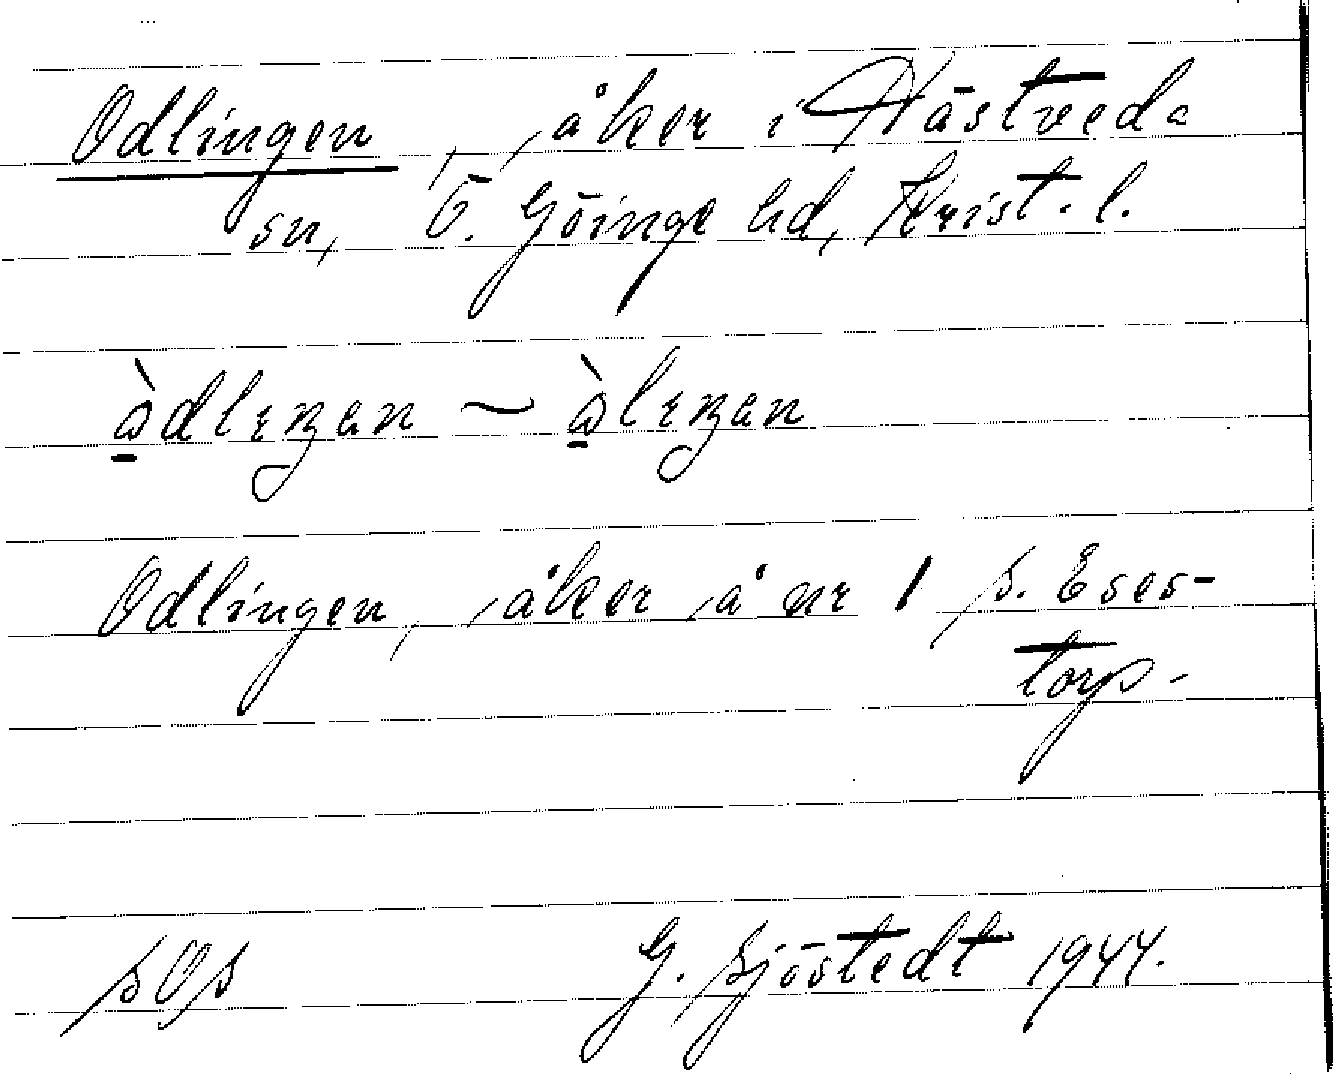 Odlingen, åker i Hästveda
sn, Ö. Göinge hd, Krist. l.
Odlingen, åker å nr 1 s. Eses-
torp.
SOS G. Sjöstedt 1944.